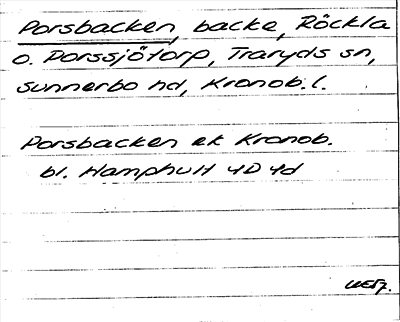 Porsbacken, backe, Röckla
o. Porssjötorp, Traryds sn,
Sunnerbo hd, Kronob. l.
Porsbacken ek Kronob.
bl. Hamphult 4D 4d